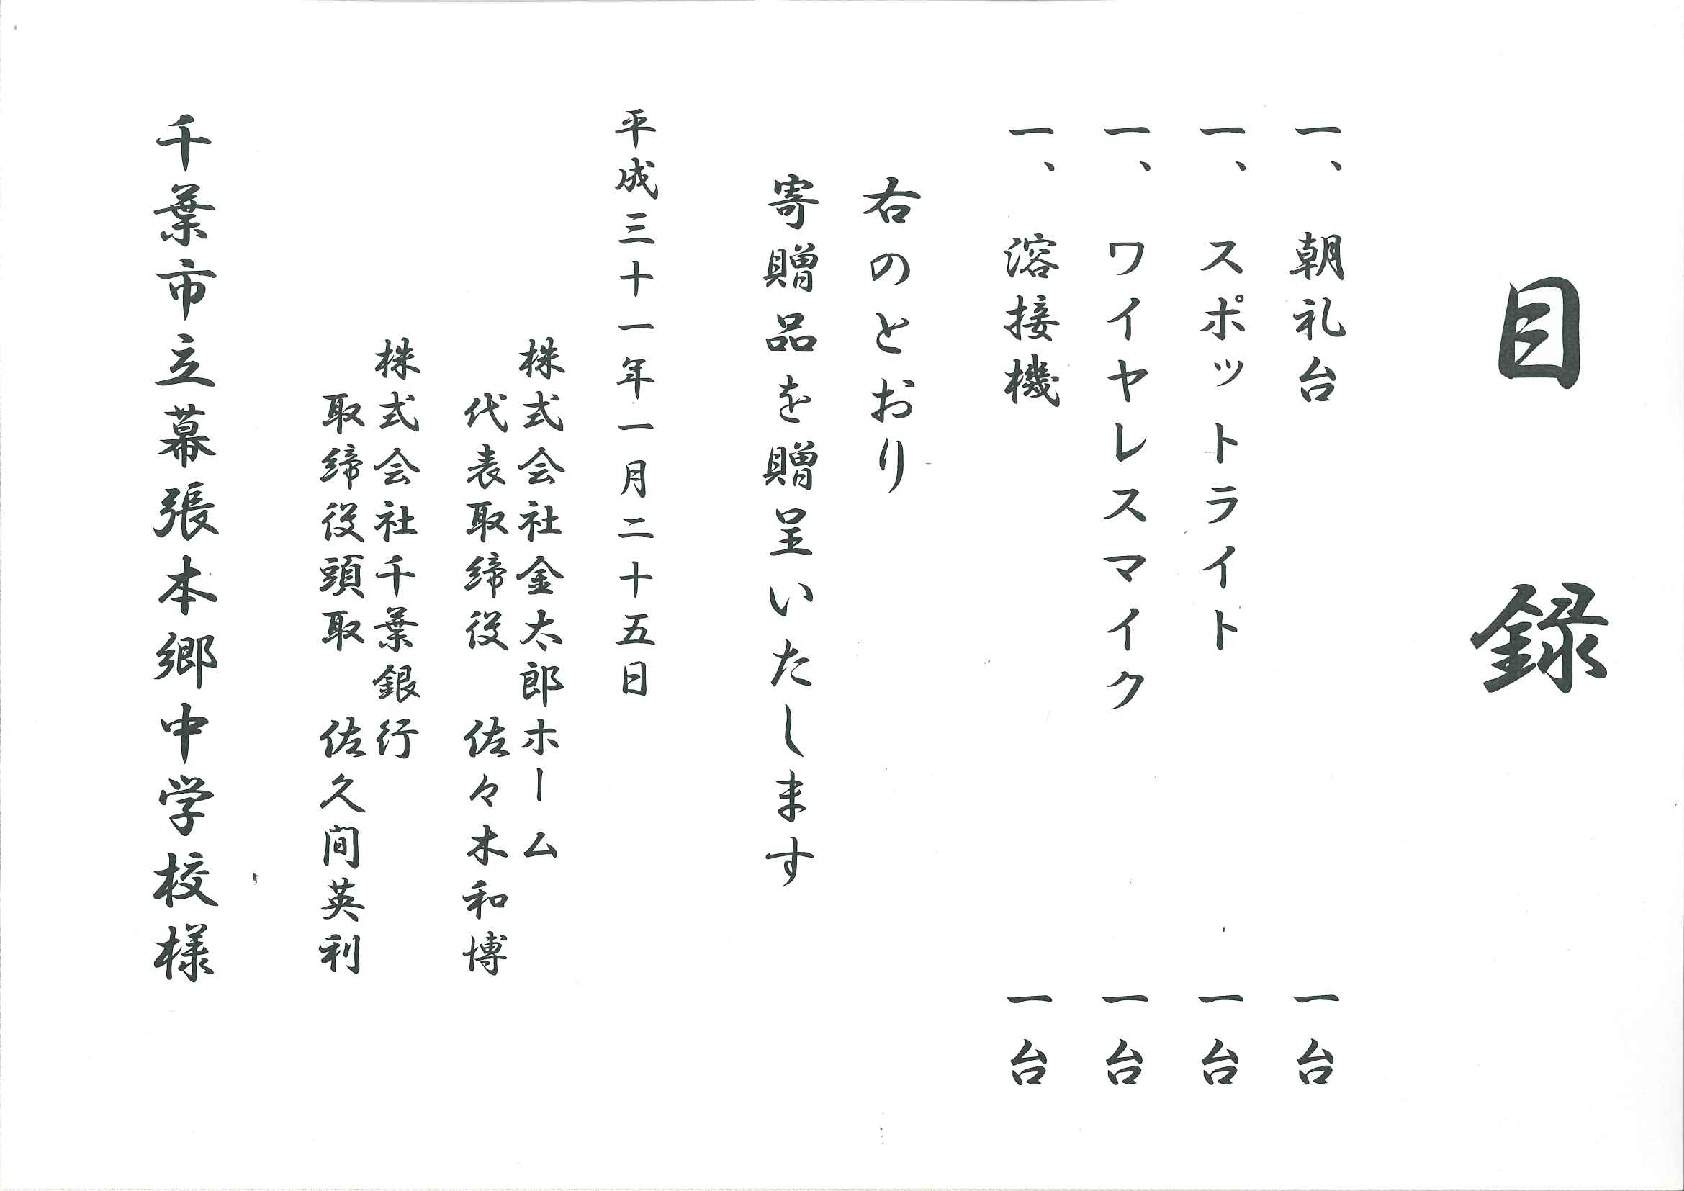 目録
一、朝礼台 一台
一、スポットライト 一台
一、ワイヤレスマイク 一台
一、溶接機 一台
右のとおり
寄贈品を贈呈いたします
平成三十一年一月二十五日
株式会社金太郎ホーム
代表取締役 佐々木和博
株式会社千葉銀行
取締役頭取 佐久間英利
千葉市立幕張本郷中学校様